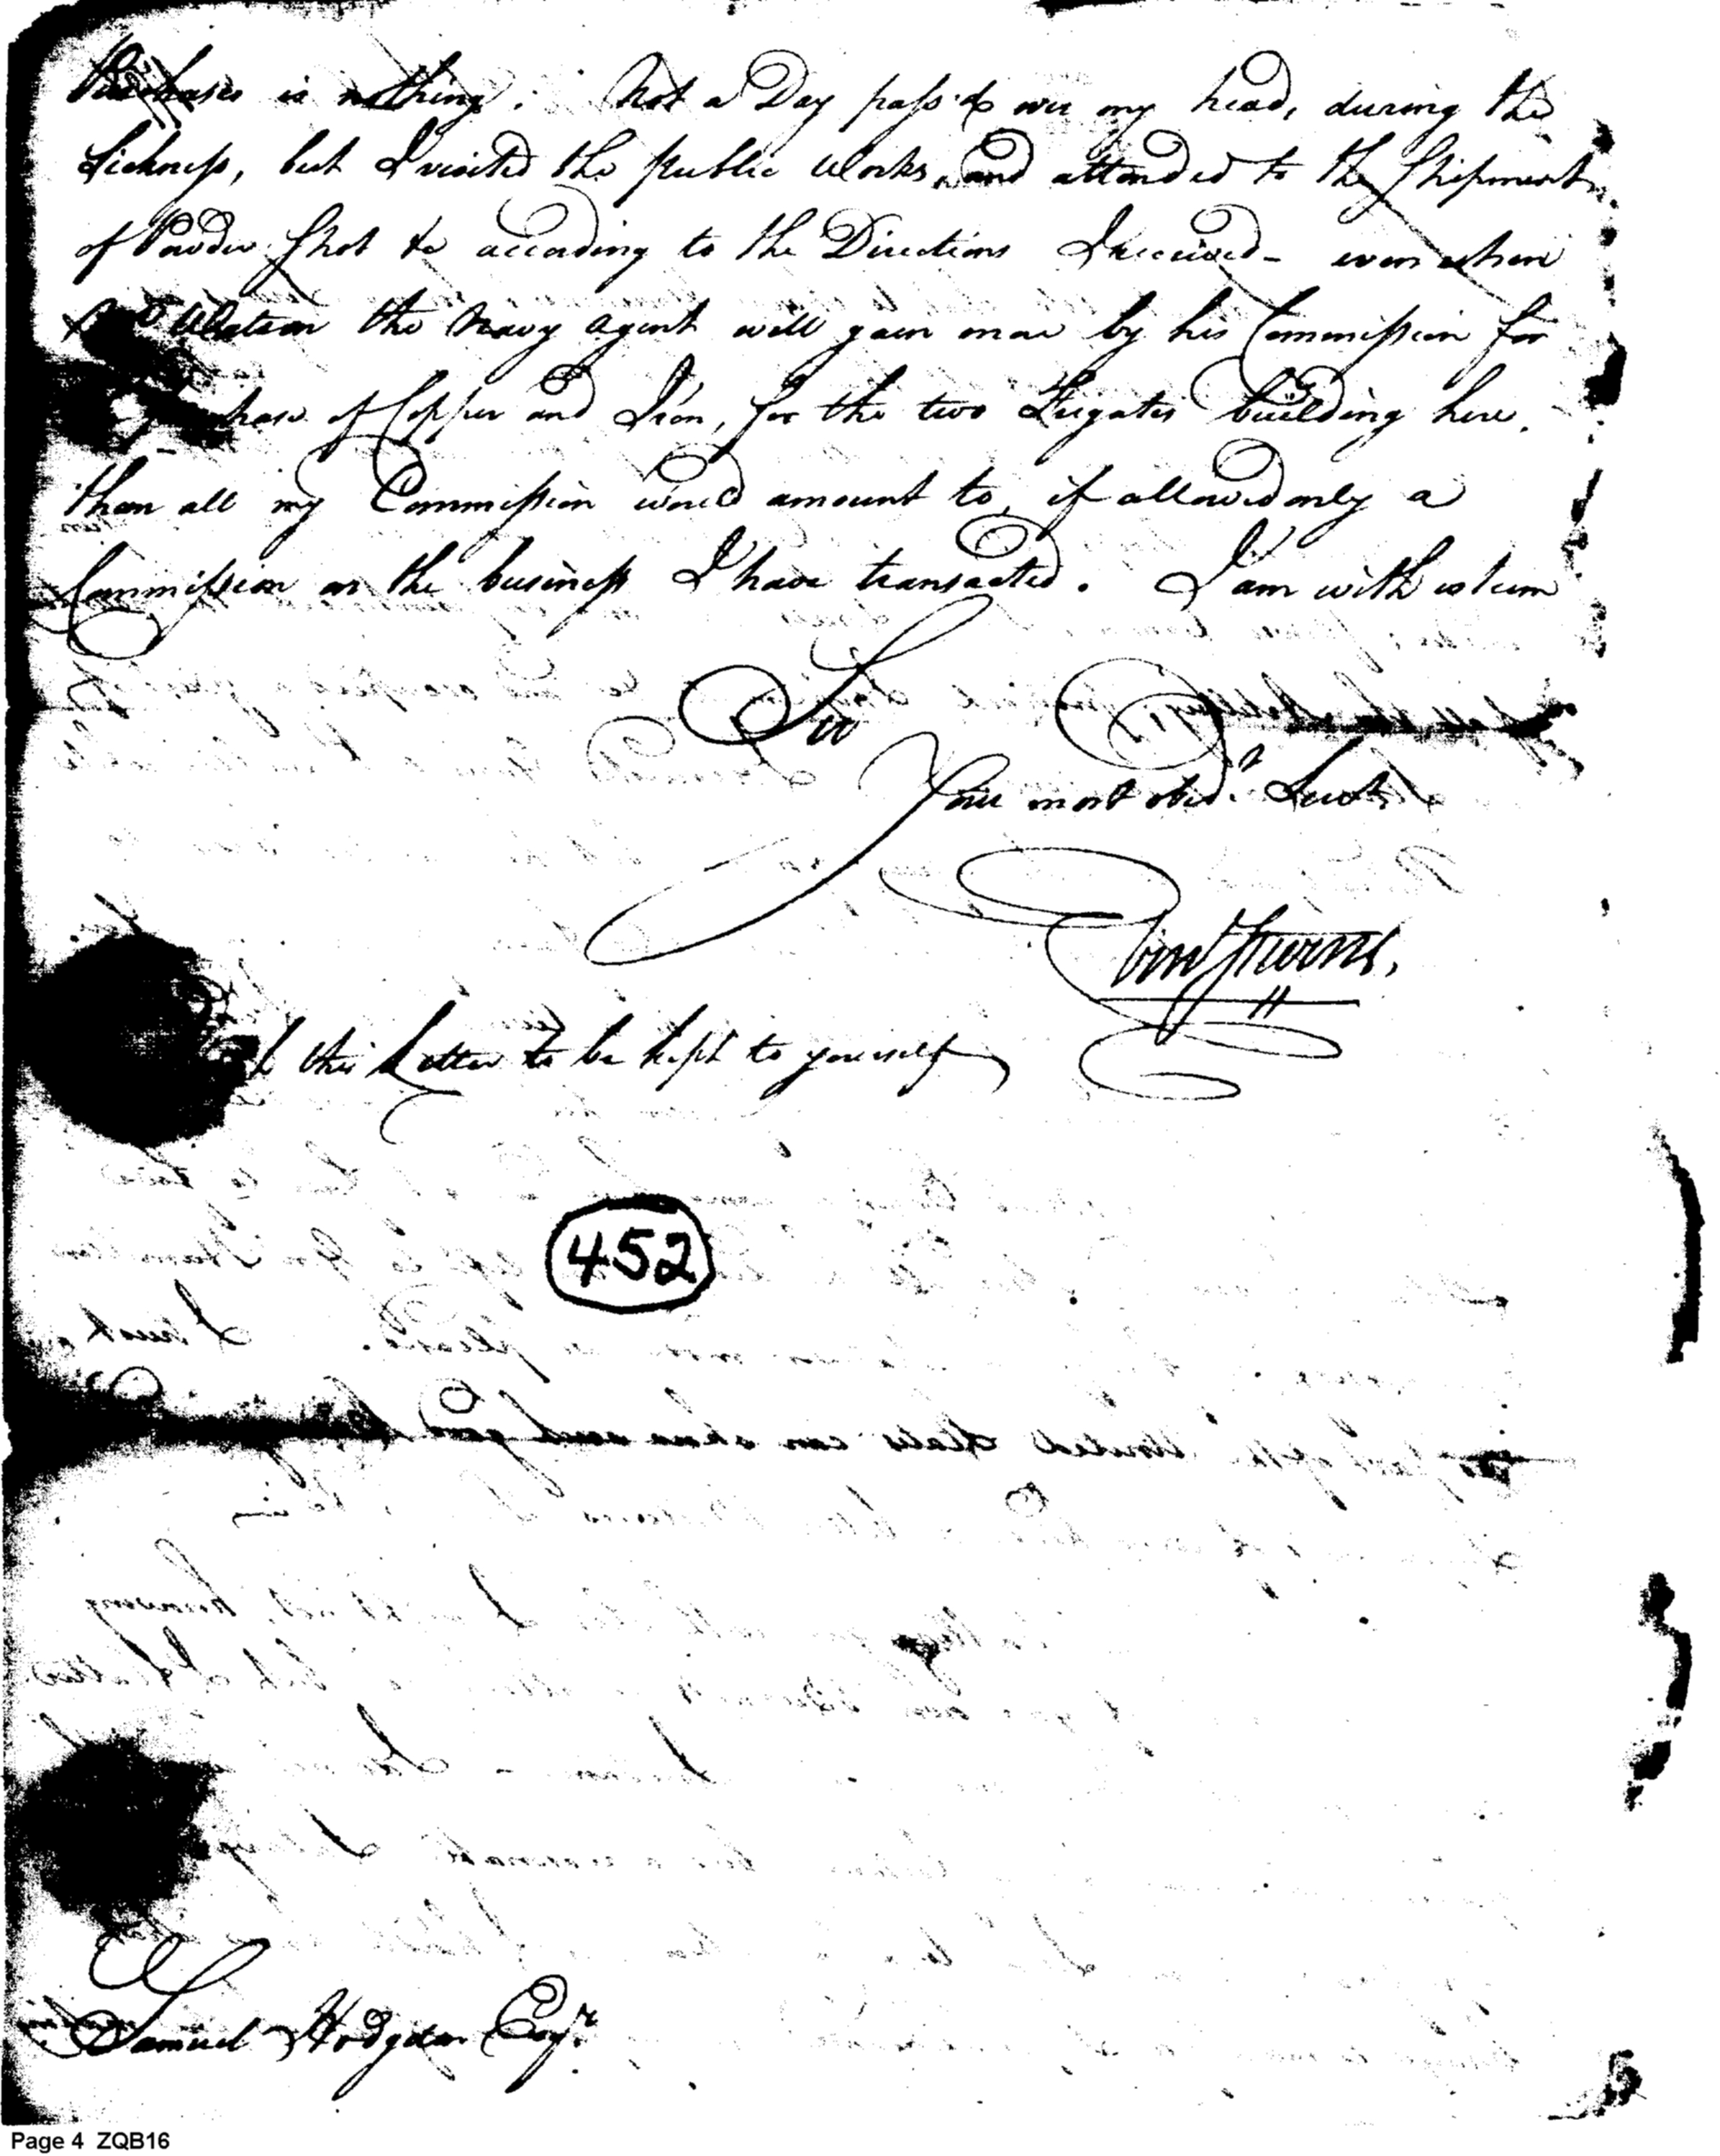 Purchases is nothing. Not a Day pass'd over my head, during the
Sickness, but I visited the public Works, and attended to the Shipment
of Powder Shot &c according to the Directions I received – even when
Watson the Navy Agent will gain more by his Commission for
of Copper and Iron, for the two Frigates building here,
than all my Commission would amount to, if allowed only a
Commission on the business I have transacted. I am with esteem
Sir
Your most obedt Servt
Ebenr Stevens.
this Letter to be kept to yourself
452
Samuel Hodgdon Esqr
Page 4 ZQB16